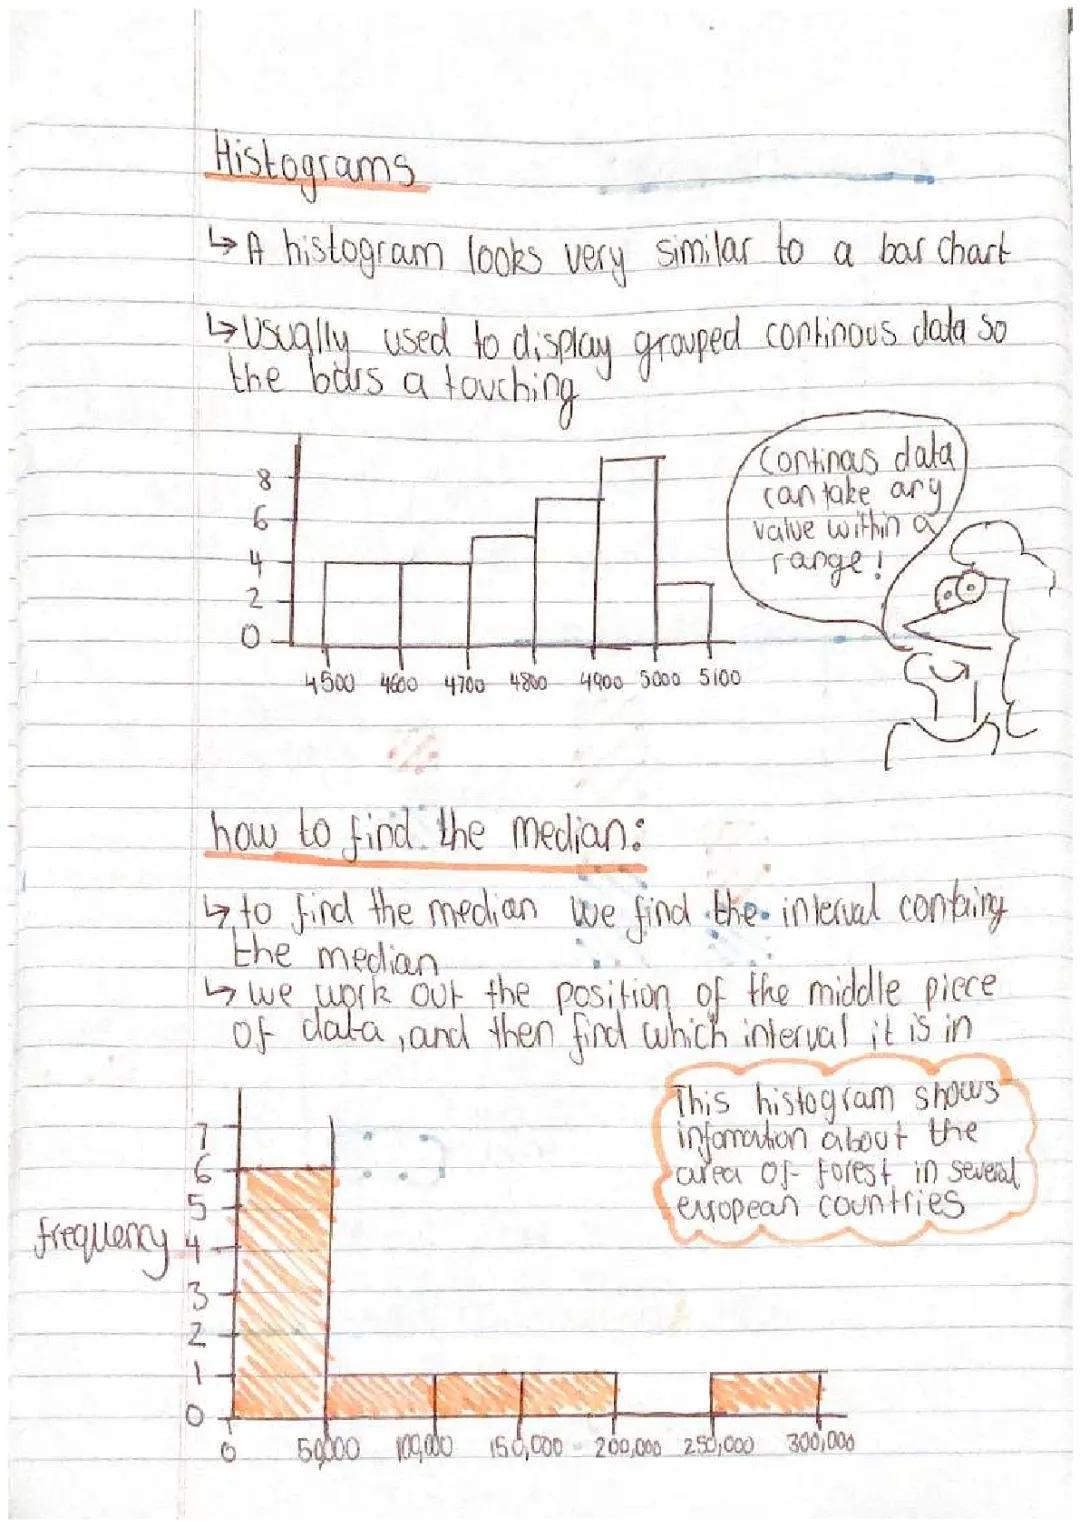 Histograms
↳ A histogram looks very similar to a bar chart
↳ Usually used to display grouped continous data so
the bars a touching
Continous data
can take any
value within a
range!
8
6
4
2
0
4500 4600 4700 4800 4900 5000 5100
how to find the median:
↳ to find the median we find the interval containg
the median
↳ we work out the position of the middle piece
of data, and then find which interval it is in
This histogram shows
infomation about the
area of forest in several
european countries
frequency
7
6
5
4
3
2
1
0
0 50,000 100,000 150,000 200,000 250,000 300,000